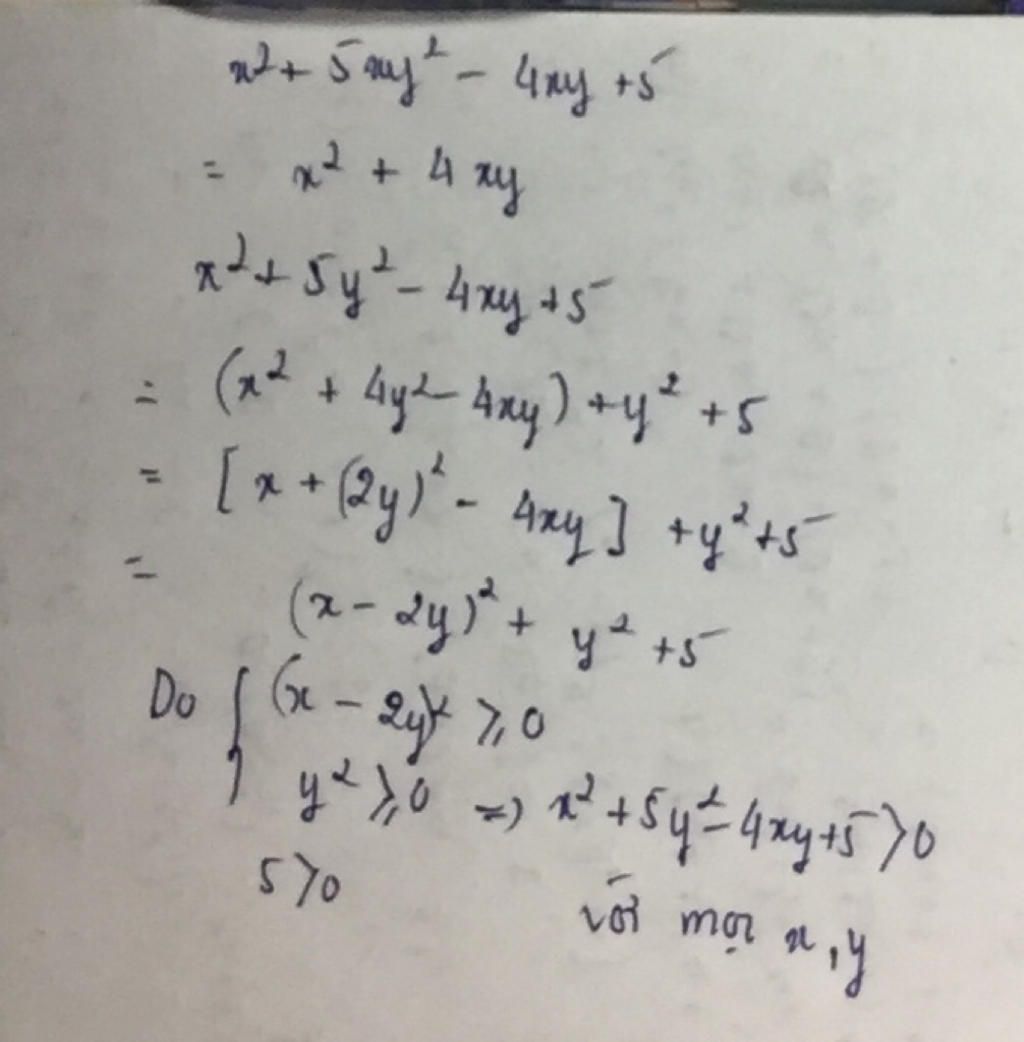 x² + 5xy² - 4xy + 5
= x² + 4xy
x² + 5y² - 4xy + 5
= (x² + 4y² - 4xy) + y² + 5
= [x + (2y)² - 4xy] + y² + 5
= (x - 2y)² + y² + 5
Do { (x - 2y)² ⩾ 0
y² ⩾ 0 => x² + 5y² - 4xy + 5 > 0
5 > 0 với mọi x, y